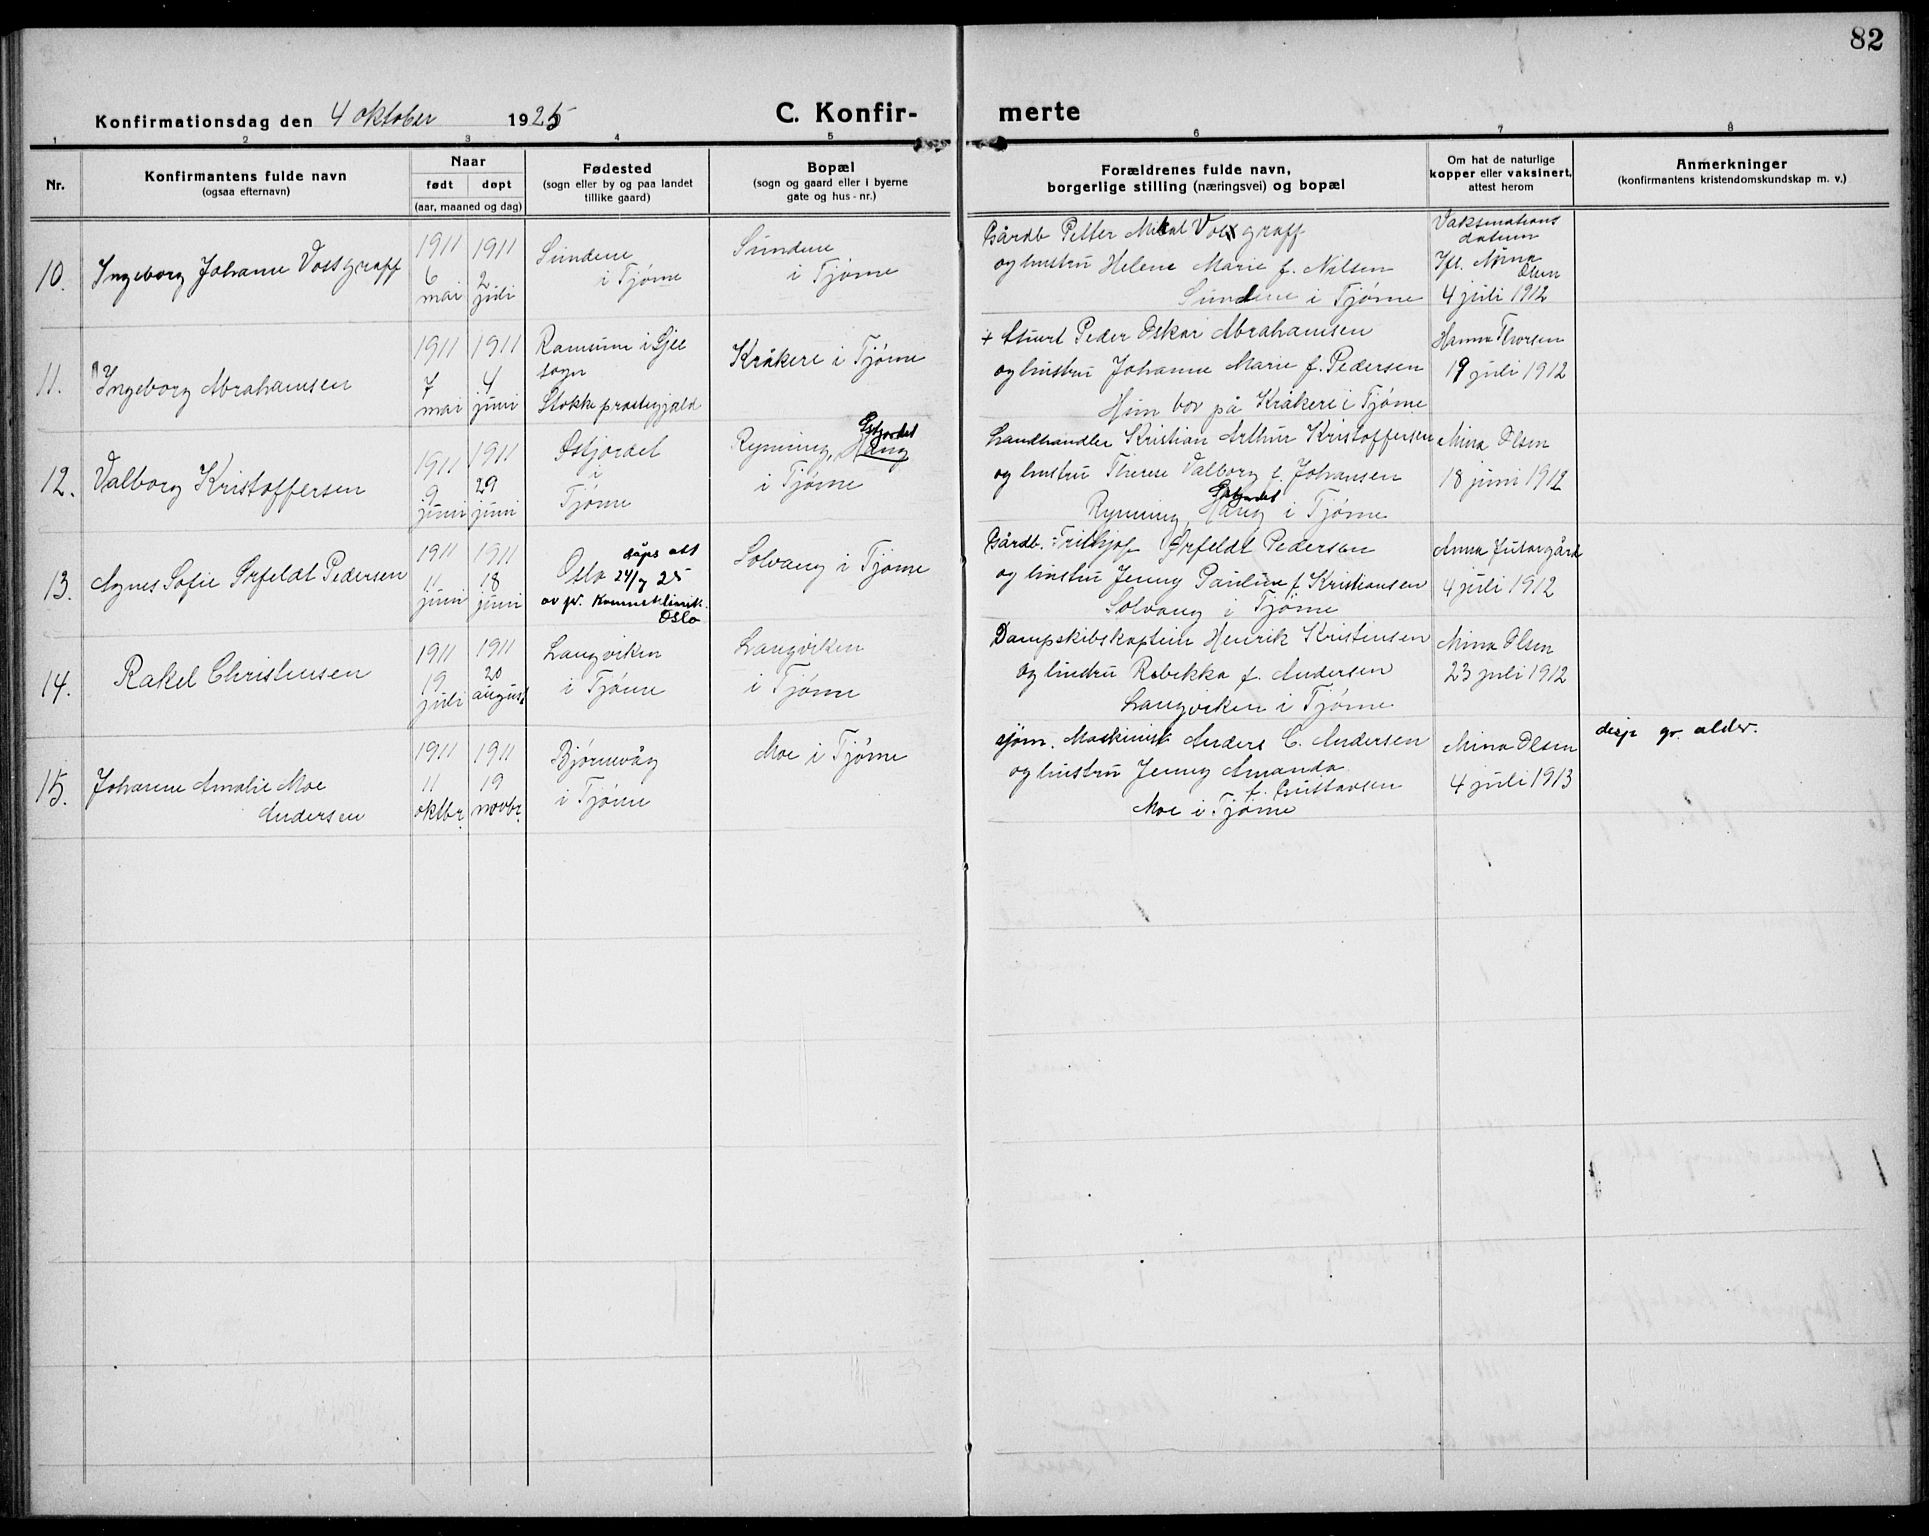 82
Konfirmationsdag den 4 oktober 1925
C. Konfir- merte
1 2 3 4 5 6 7 8
Nr.
Konfirmantens fulde navn
(ogsaa efternavn)
Naar
født døpt
(aar, maaned og dag)
Fødested
(sogn eller by og paa landet
tillike gaard)
Bopæl
(sogn og gaard eller i byerne
gate og hus-nr.)
Forældrenes fulde navn,
borgerlige stilling (næringsvei) og bopæl
Om hat de naturlige
kopper eller vaksinert,
attest herom
Anmerkninger
(konfirmantens kristendomskundskap m. v.)
10.
Ingeborg Johanne Vossgraff
1911
6
mai
1911
2
juli
Sundene
i Tjøme
Sundene
i Tjøme
Gårdb Petter Mikal Volxgraff
og hustru Helene Marie f. Nilsen
Sundene i Tjøme
Vaksinations
datum
Mina
Olsen
4 juli 1912
11.
Ingeborg Abrahamsen
1911
7
mai
1911
4
juni
Ramsum i
sogn
Stokke prestegjæld
Kråkere i Tjøme
+ Stuert Peder Oskar Abrahamsen
og hustru Johanne Marie f. Pedersen
Hun bor på Kråkere i Tjøme
Hanna Thorsen
19 juli 1912
12.
Valborg Kristoffersen
1911
9
juni
1911
29
juni
Østjordet
i
Tjøme
Østjordet
Rynning, Haug
i Tjøme
Landhandler Kristian Arthur Kristoffersen
og hustru Therese Valborg f. Johansen
Østjordet
Rynning, Haug i Tjøme
Mina Olsen
18 juni 1912
13.
Agnes Sofie Ørfeldt Pedersen
1911
11
juni
1911
18
juni
dåps att
Oslo 24/7 25
av pr. Kvinneklinik.
Oslo
Solvang i Tjøme
Gårdb. Frithjof Ørfeldt Pedersen
og hustru Jenny Pauline f. Kristiansen
Solvang i Tjøme
Anna
4 juli 1912
14.
Rakel Christensen
1911
19
juli
1911
20
august
Langviken
i Tjøme
Langviken
i Tjøme
Dampskibskaptein Henrik Kristensen
og hustru Rebekka f. Andersen
Langviken i Tjøme
Mina Olsen
23 juli 1912
15.
Johanne Amalie Moe
Andersen
1911
11
oktbr.
1911
19
novbr.
Bjørnevåg
i Tjøme
Moe i Tjøme
sjøm. Maskinist Anders C. Andersen
og hustru Jenny Amanda
f. Gustavsen
Moe i Tjøme
Mina Olsen
4 juli 1913
disp gr. alder.